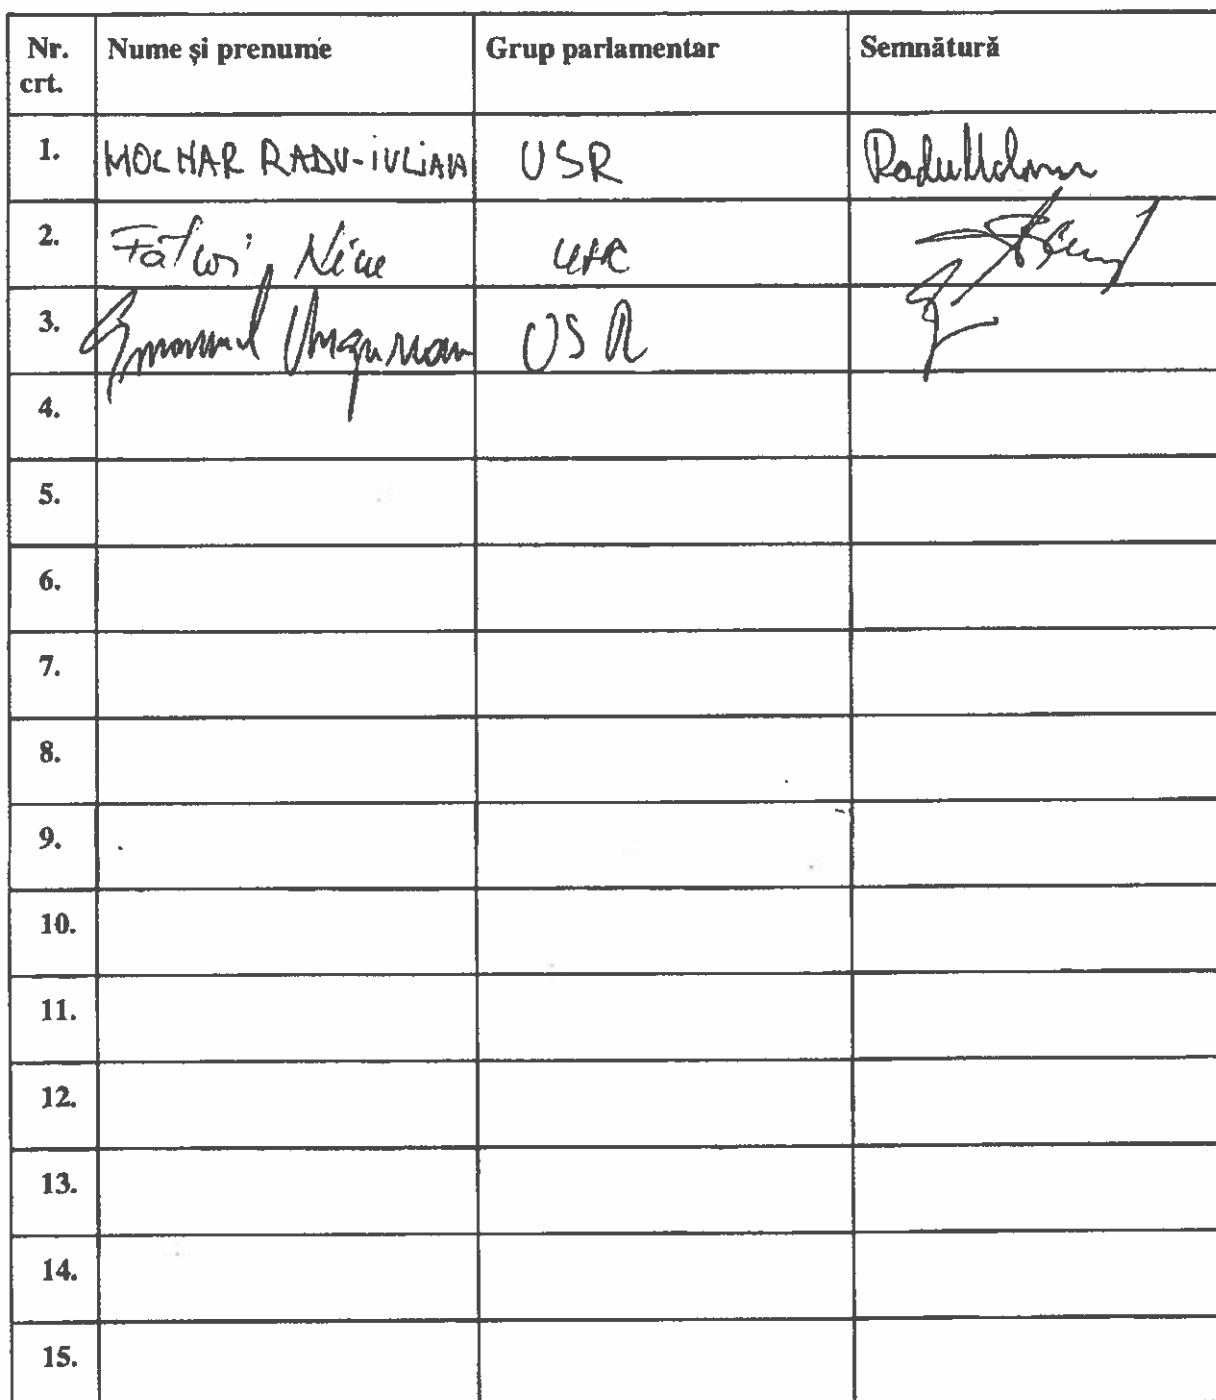 Nr. crt. Nume și prenume Grup parlamentar Semnătură
1. MOLNAR RADU-IULIAN USR Radu Molnar
2. Fălcoi Nicu USR
3. Emanuel Ungureanu USR
4.
5.
6.
7.
8.
9.
10.
11.
12.
13.
14.
15.